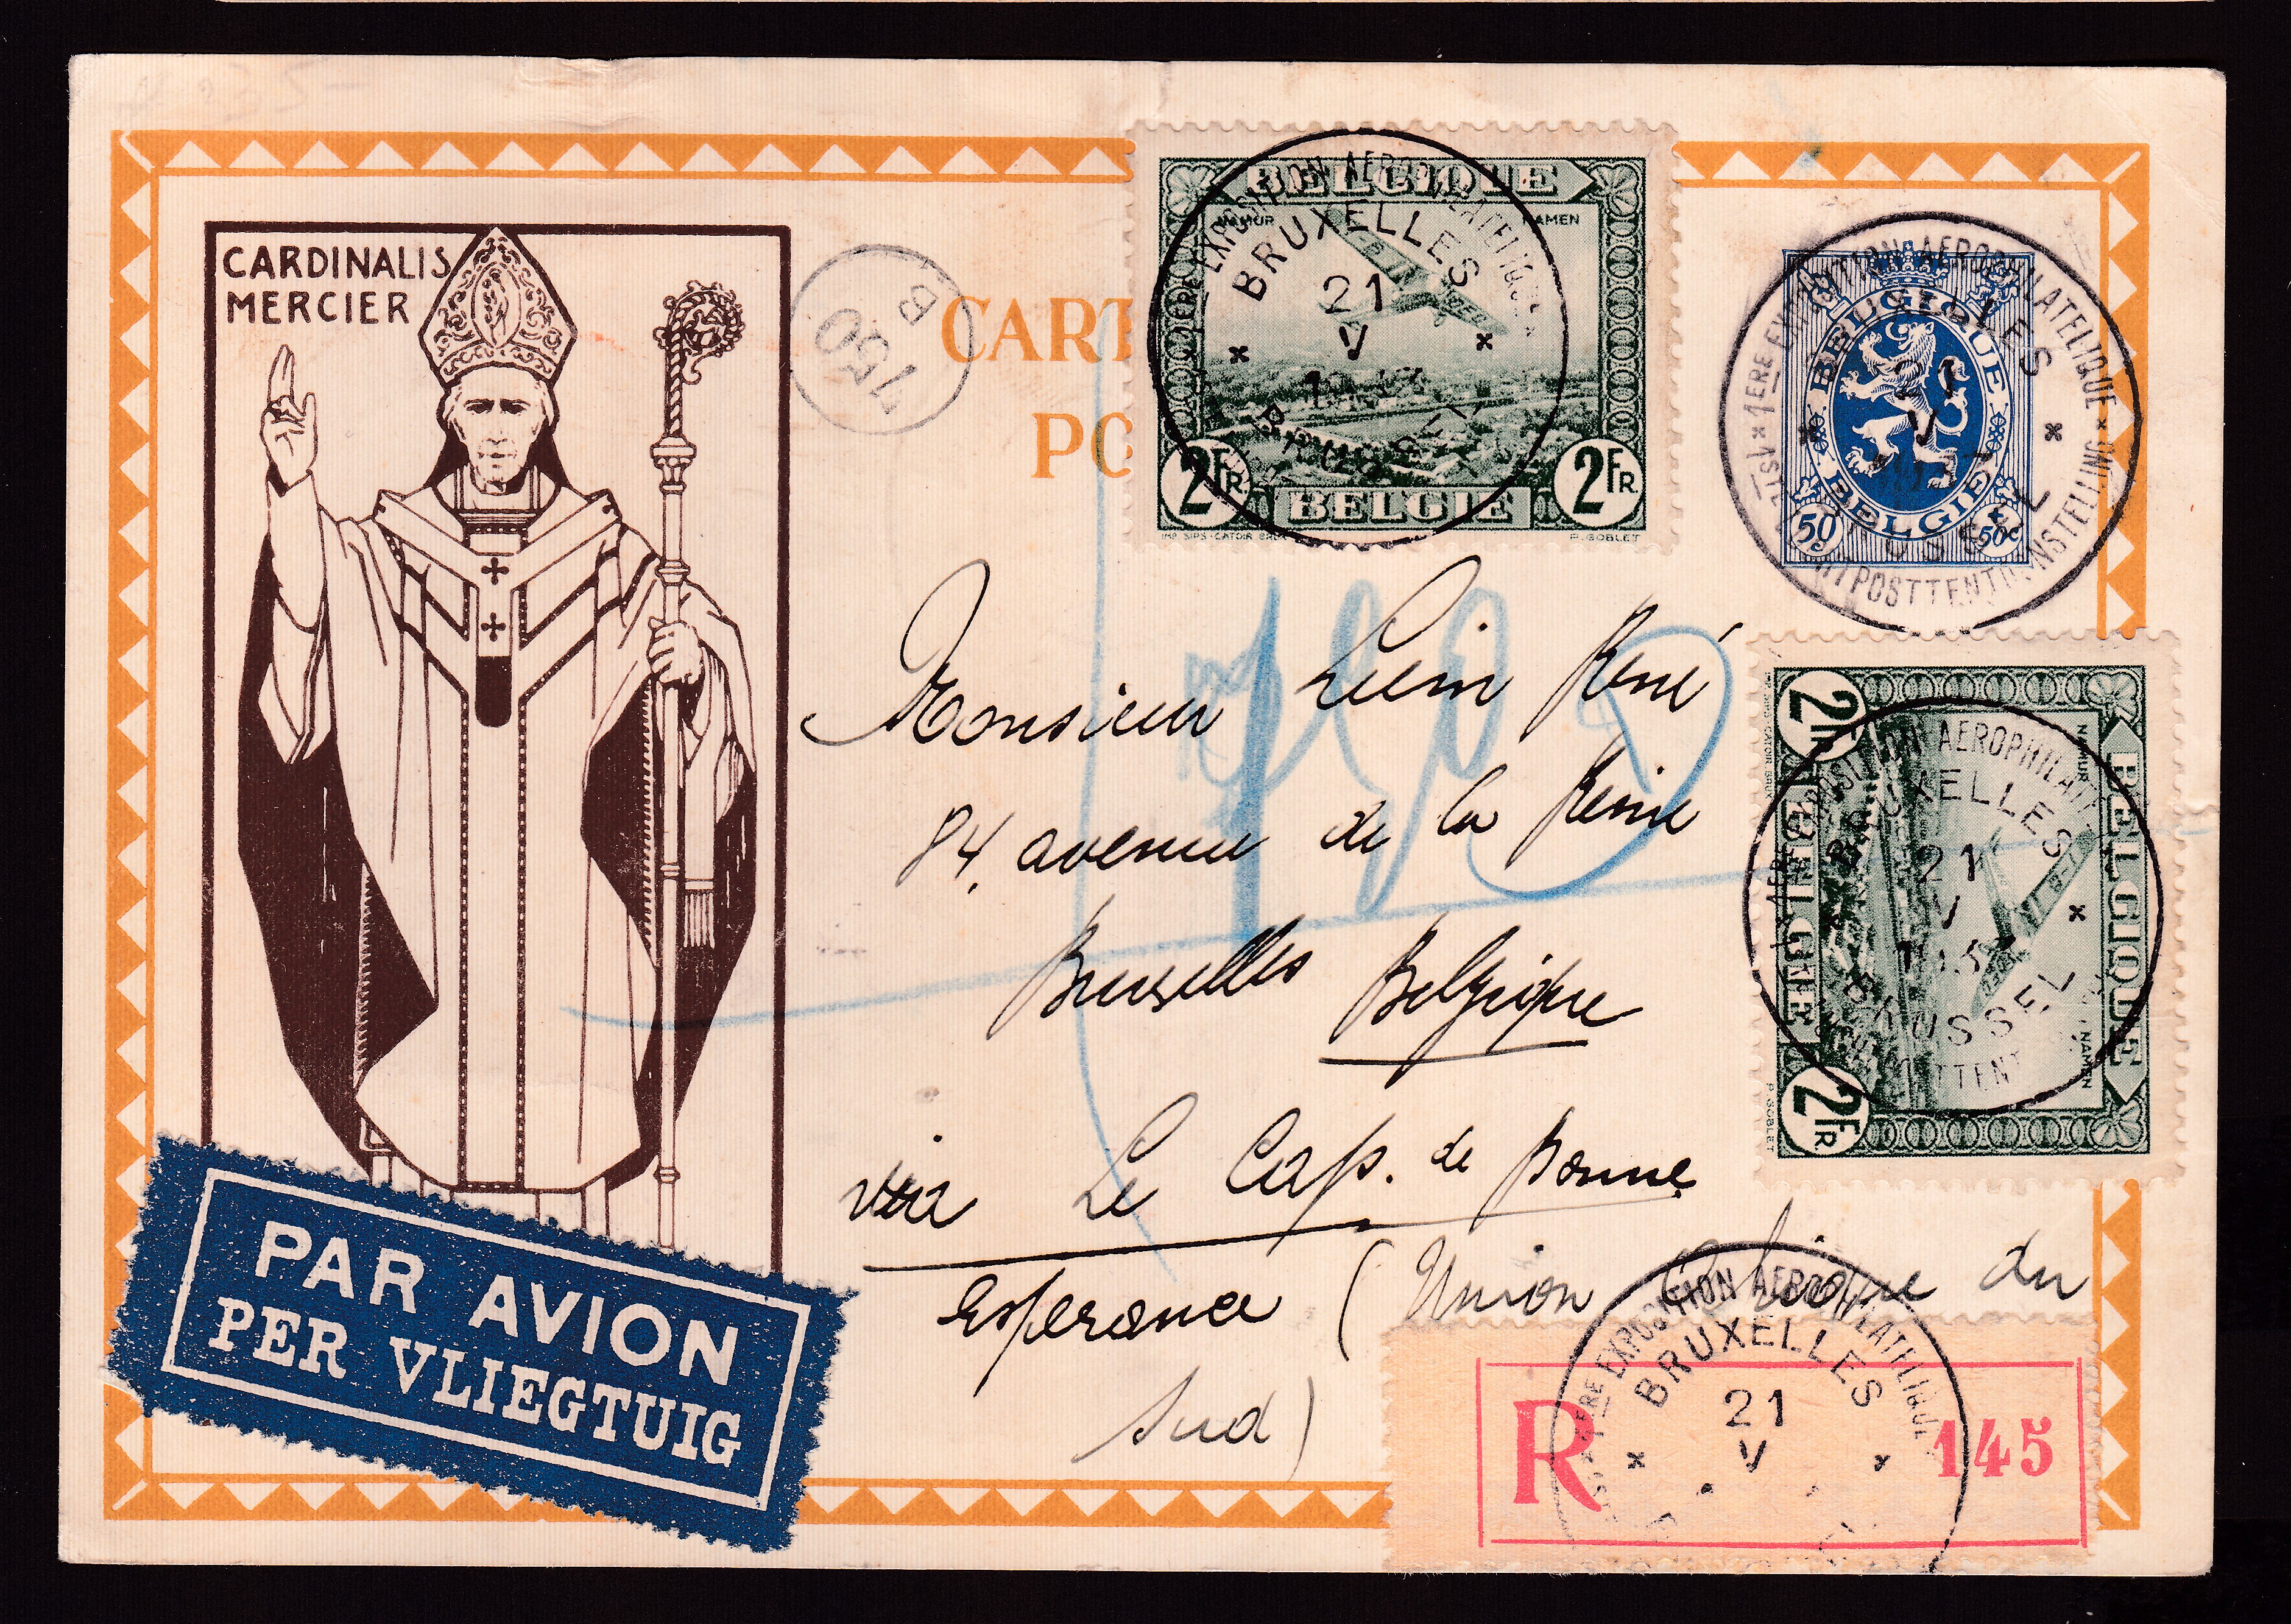 CARDINALIS
MERCIER
B
150
CART
PO
BELGIQUE
NAMUR NAMEN
2FR 2FR
BELGIE
IMP. SIPS-CATOIR P. GOBLET
1ERE EXPOSITION AEROPHILATELIQUE
BRUXELLES
21
V
BELGIQUE
BELGIE
50c 50c
1ERE EXPOSITION AEROPHILATELIQUE
21
V
POSTTENTOONSTELLING
Monsieur René
84, avenue de la Reine
Bruxelles Belgique
via Le Cap. de Bonne
Esperance (Union Afrique du
Sud)
BELGIQUE
NAMUR NAMEN
2FR 2FR
BELGIE
P. GOBLET
EXPOSITION AEROPHILATELIQUE
BRUXELLES
21
V
BRUSSEL
PAR AVION
PER VLIEGTUIG
R 145
1ERE EXPOSITION AEROPHILATELIQUE
BRUXELLES
21
V